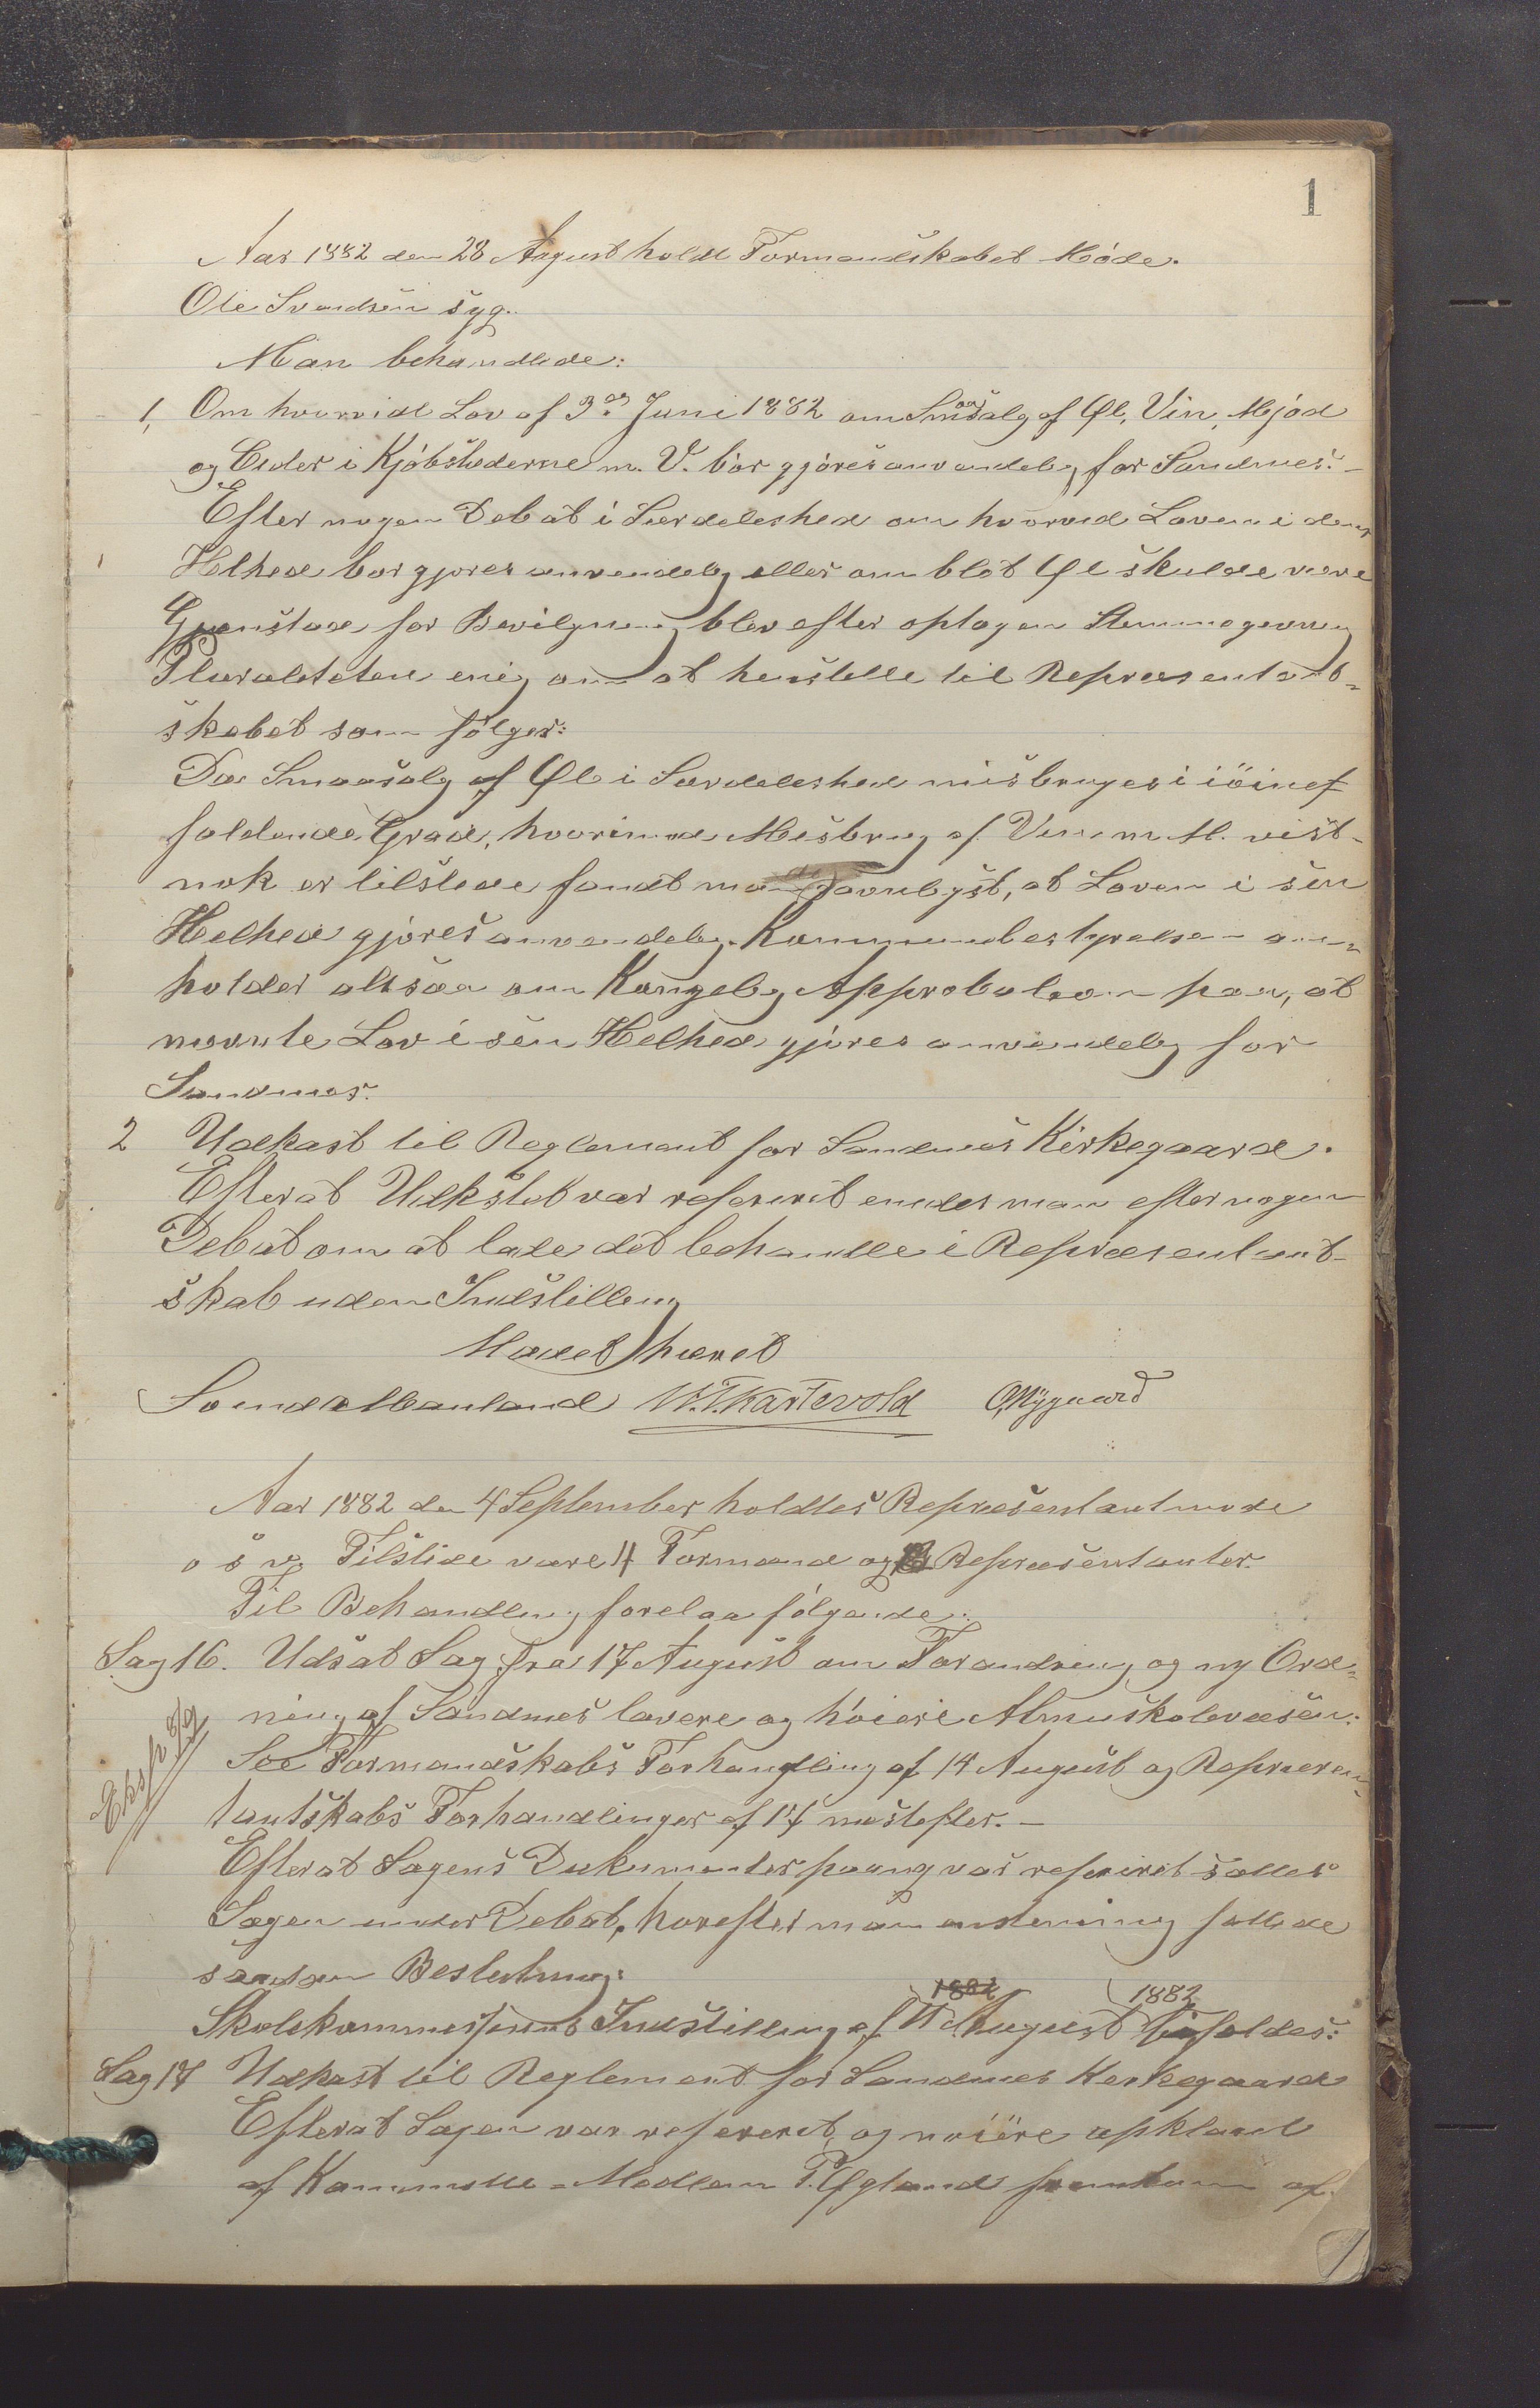 1
Aar 1882 den 28 August holdt Formandskabet Møde.
Ole Svendsen syg.
Man behandlede:
1, Om hvorvidt Lov af 3die Juni 1882 om Smaasalg af Øl, Vin, Mjød
og Cider i Kjøbstæderne m. V. bør gjøres anvendelig for Sandnes. -
Efter nogen Debat i Særdeleshed om hvorvid Loven i dens
Helhed bør gjøres anvendelig eller om blot Øl skulde være
Gjenstand for Bevilgning blev efter optagen Stemmegivning
Pluraliteten enig om at henstille til Repræsentant-
skabet som følger:
Da Smaasalg af Øl i Særdeleshed misbruges i iøinef
faldende Grad, hvorimod Misbrug af Vin m. M. vist-
nok er tilstede fandt man det ønskeligst, at Loven i sin
Helhed gjøres anvendelig. Kommunebestyrelsen an-
holder altsaa om Kongelig Approbation paa, at
nævnte Lov i sin Helhed gjøres anvendelig for
Sandnes.
2 Udkast til Reglement for Sandnes Kirkegaard.
Efterat Udkastet var refereret enedes man efter nogen
Debat om at lade det behandle i Repræsentant-
skab uden Indstilling
Mødet hævet
W. T. Kartevold O. Nygaard
Aar 1882 den 4 September holdtes Repræsentantmøde
o s v. Tilstede være 4 Formænd og Repræsentanter.
Til Behandling forelaa følgende:
Sag 16. Udsat Sag fra 17 August om Forandring og ny Ord-
ning af Sandnes lavere og høiere Almuskolevæsen:
See Formandskabs Forhandling af 14 August og Repræsen-
tantskabs Forhandlinger af 17 næstefter. -
Eksp 8/9
Efterat Sagens Dokumenter paany var refereret sattes
Sagen under Debat, hvorefter man enstemmig fattede
saadan Beslutning:
1882 1882
Skolekommissionens Indstilling af 11 August bifaldes:
Sag 17 Udkast til Reglement for Sandnes Kirkegaard
Efterat Sagen var refereret, og nøiere opklaret
af Kommitte-Medlem T. Ygland fremkom af
1